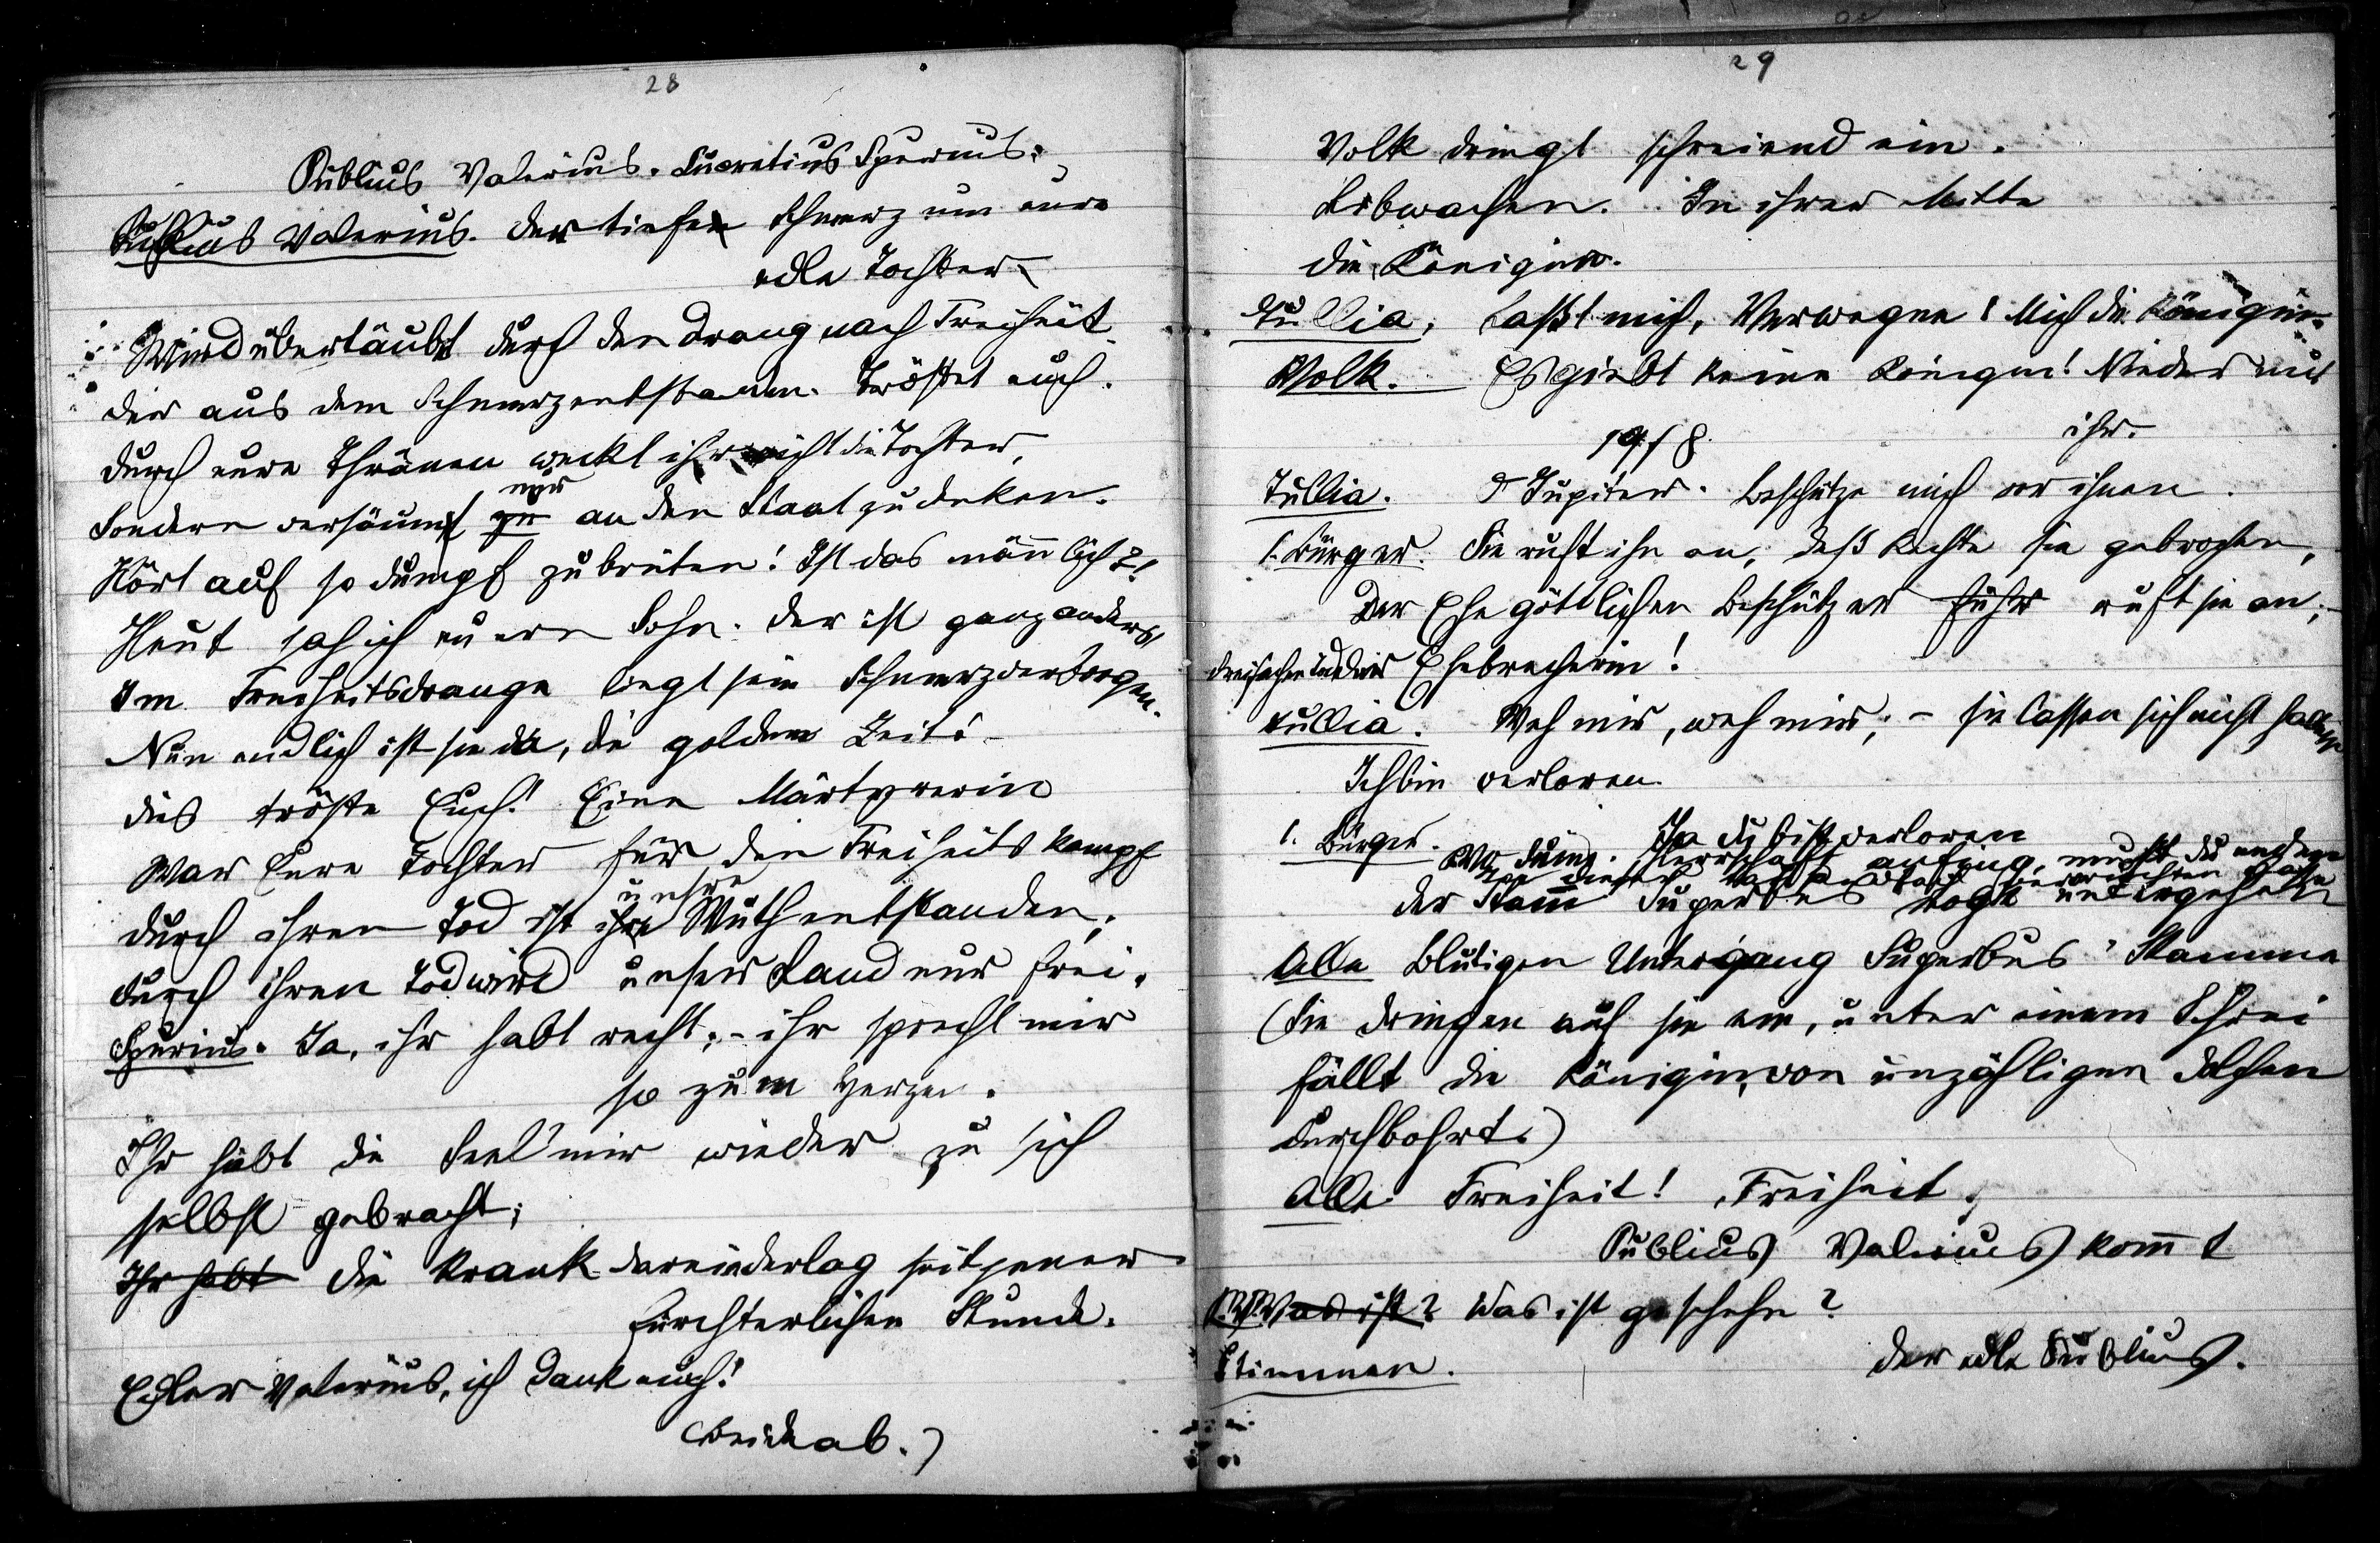 28
Publius Valerius. Lucretius Spurius.
Publius Valerius. Der tiefe Schmerz um eure
edle Tochter
Wird übertäubt durch den Drang nach Freiheit
der aus dem Schmerz entstanden. Tröstet euch.
Durch eure Thränen weckt ihr nicht die Tochter,
Sondern versäumt zu nur an den Staat zu denken.
Hört auf so dumpf zu brüten! Ist das männlich?!
Heut sah ich euern Sohn. Der ist ganz anders,
Im Freiheitsdrange liegt sein Schmerz verborgen.
Nun endlich ist sie da, die goldene Zeit! -
Dies tröste Euch! Eine Märtyrerin
War Eure Tochter für den Freiheitskampf
unsre
Durch ihren Tod ist ihre Wuth entstanden;
Durch ihren Tod wird unser Land nur frei.
Spurius. Ja, ihr habt recht; - ihr sprecht mir
so zum Herzen.
Ihr habt die Seel' mir wieder zu sich
selbst gebracht;
Ihr habt die krank darniederlag seit jener
fürchterlichen Stunde.
Edler Valerius, ich dank euch!
(Beide ab.)
29
Volk dringt schreiend ein.
Leibwachen. In ihrer Mitte
die Königin.
Tullia. Laßt mich, Verwegne! Mich die Königin.
Volk. Es giebt keine Königin! Nieder mit
ihr.
1918
Tullia. O Jupiter. Beschütze mich vor ihnen.
1. Bürger. Sie ruft ihn an, deß Rechte sie gebrochen,
Der Ehe göttlichen Beschützer ruft sie an;
Ehebrecherin!
Tullia. Weh mir, weh mir; - sie lassen sich nicht halten
Ich bin verloren.
1. Bürger. Ja du bist verloren
Herrschaft anfing, mußt du enden
Der Stamm Superbus untergehen
Alle Blutigen Untergang Superbus' Stamme
(Sie dringen auf sie ein, unter einem Schrei
fällt die Königin, von unzähligen Dolchen
durchbohrt.)
Alle Freiheit! Freiheit.
Publius Valerius kommt
P. V. Was ist? Was ist geschehn?
Stimmen. Der edle Publius.